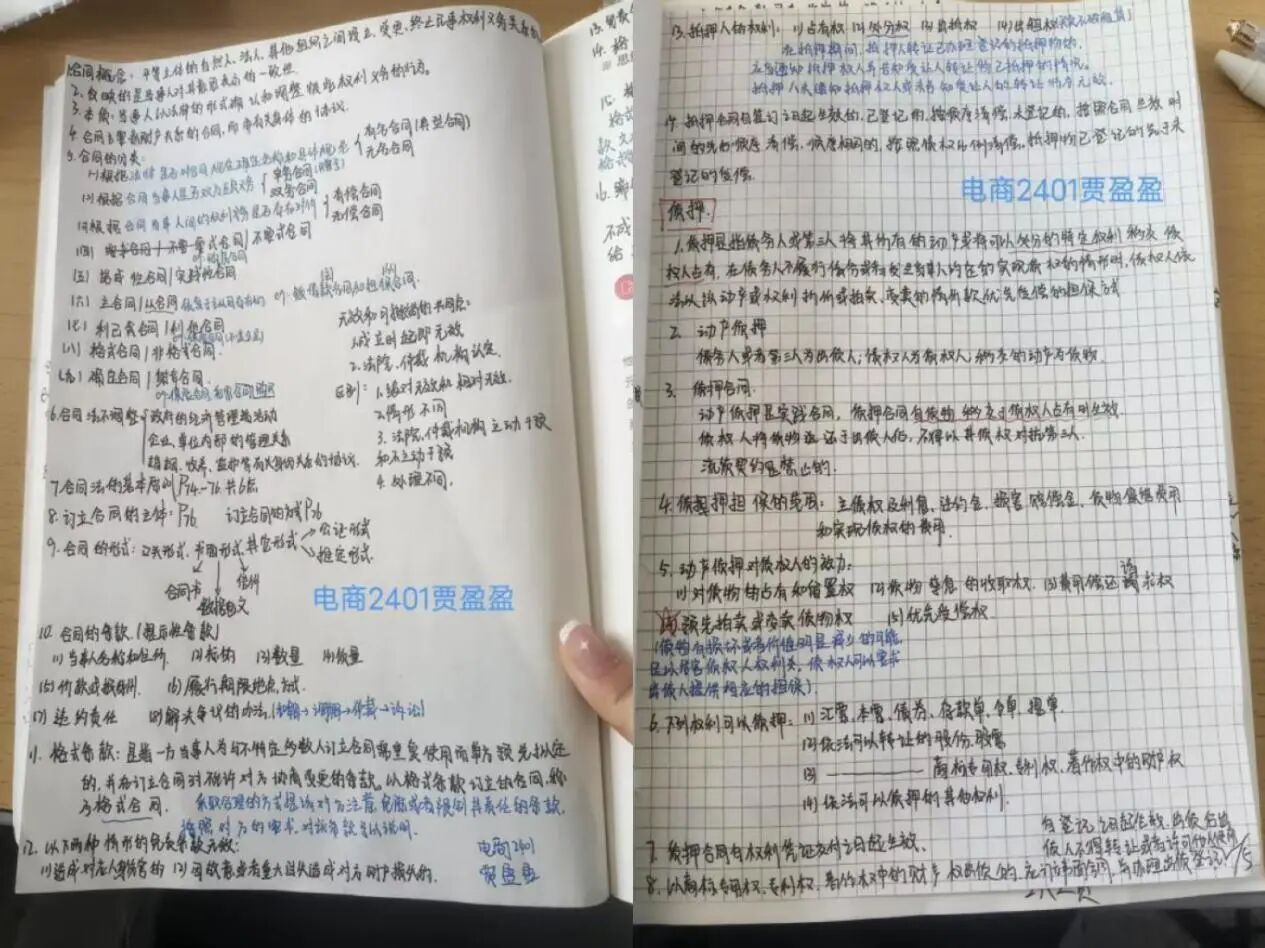 1.合同概念：平等主体的自然人、法人、其他组织之间设立、变更、终止民事权利义务关系的
2.反映的是当事人对其意思表示的一致性
3.本质：当事人以法律的形式确认和调整彼此权利义务的行为。
4.合同主要指财产关系的合同，即带有关身体的协议
5.合同的分类：
(1)根据法律是否对合同规定确定名称和具体规定 有名合同(典型合同) 无名合同
(2)根据合同当事人是否双方互负义务 单务合同(赠与) 双务合同
(3)根据合同当事人间的权利义务是否存在对价 有偿合同 无偿合同
(四) 要式合同/不要式合同
(五) 诺成性合同/实践性合同
(六) 主合同/从合同
(七) 利己合同/利他合同
(八) 格式合同/非格式合同.
(九) 确定合同/
无效和可撤销的共同点：
1.成立时起即无效
2.法院、仲裁机构认定.
区别：1.绝对无效和相对无效.
2.情形不同
3.法院、仲裁机构主动干预
和不主动干预
4.处理不同.
6.合同法不调整 政府的经济管理活动
企业、单位内部的管理关系
婚姻、收养、监护等有关身份关系的协议.
7.合同法的基本原则 P74-76共6点
8.订立合同的主体：P76 订立合同的方式P76
9.合同的形式：口头形式、书面形式、其它形式 公证形式 推定形式
合同书 信件
数据电文
电商2401贾盈盈
10.合同的条款.(提示性条款)
(1)当事人名称和住所. (2)标的 (3)数量 (4)质量
(5)价款或报酬 (6)履行期限地点方式.
(7)违约责任 (8)解决争议的办法.(和解→调解→仲裁→诉讼)
11.格式条款：是指一方当事人为与不特定多数人订立合同需重复使用而单方预先拟定
的，并在订立合同时不允许对方协商变更的条款。以格式条款订立的合同，称
为格式合同. 采取合理的方式提请对方注意免除或者限制其责任的条款，
按照对方的要求，对该条款予以说明.
12.以下两种情形的免责条款无效：
(1)造成对方人身伤害的 (2)因故意或者重大过失造成对方财产损失的.
电商2401
贾盈盈
13.抵押人的权利：(1)占有权 (2)处分权 (3)出抵权 (4)出租权
在抵押期间，抵押人转让已办理登记的抵押物的，
应当通知抵押权人并告知受让人转让物已抵押的情况。
抵押人未通知抵押权人或未告知受让人的，转让行为无效
14.抵押合同自签订之日起生效的，已登记的，按顺序清偿，未登记的，按照合同生效时
间的先后顺序清偿，顺序相同的，按照债权比例清偿。抵押物已登记的先于未
登记的受偿.
电商2401贾盈盈
质押.
1.质押是指债务人或第三人将其所有的动产或将可以处分的特定权利移交债
权人占有，在债务人不履行债务或者发生当事人约定的实现质权的情形时，债权人依
法以该动产或权利折价或拍卖、变卖的价款优先受偿的担保方式
2. 动产质押
债务人或者第三人为出质人；债权人为质权人；移交的动产为质物.
3. 质押合同.
动产质押是实践合同，质押合同自质物移交于质权人占有时生效.
质权人将质物返还于出质人后，不得以其质权对抗第三人.
流质契约是禁止的.
4.质押担保的范围：主债权及利息、违约金、损害赔偿金、质物保管费用
和实现质权的费用.
5.动产质押对质权人的效力：
(1)对质物的占有和留置权 (2)质物孳息的收取权 (3)费用偿还请求权
(4)预先拍卖或变卖质物权 (5)优先受偿权
(质物有损坏或者价值明显减少的可能，
足以损害质权人权利的，质权人可以要求
出质人提供相应的担保).
6.下列权利可以质押：(1)汇票、本票、债券、存款单、仓单、提单.
(2)依法可以转让的股份、股票
(3) ———— 商标专用权、专利权、著作权中的财产权
(4)依法可以质押的其他权利.
7. 质押合同自权利凭证交付之日起生效.
8.以商标专用权、专利权、著作权中的财产权出质的，应订书面合同，并办理出质登记.
自登记之日起生效，出质后出
质人不得转让或者许可他人使用